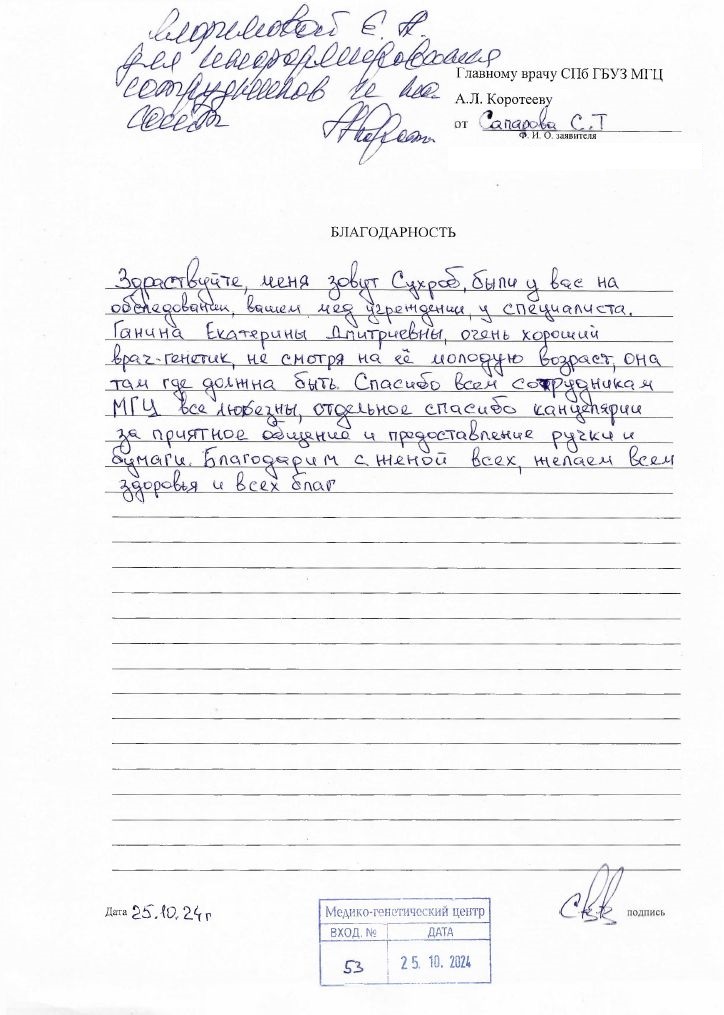 Е. А.
для информирования
сотрудников
Главному врачу СПб ГБУЗ МГЦ
А.Л. Коротееву
от Сапарова С.Т
Ф. И. О. заявителя
БЛАГОДАРНОСТЬ
Здраствуйте, меня зовут Сухроб, были у вас на
обследовании, вашем мед учреждении, у специалиста.
Ганина Екатерины Дмитриевны, очень хороший
врач-генетик, не смотря на её молодую возраст, она
там где должна быть. Спасибо всем сотрудникам
МГЦ все любезны, отдельное спасибо канцелярии
за приятное общение и предоставление ручки и
бумаги. Благодарим с женой всех, желаем всем
здоровья и всех благ
Дата 25.10.24г
подпись
Медико-генетический центр
ВХОД. № ДАТА
53 25. 10. 2024